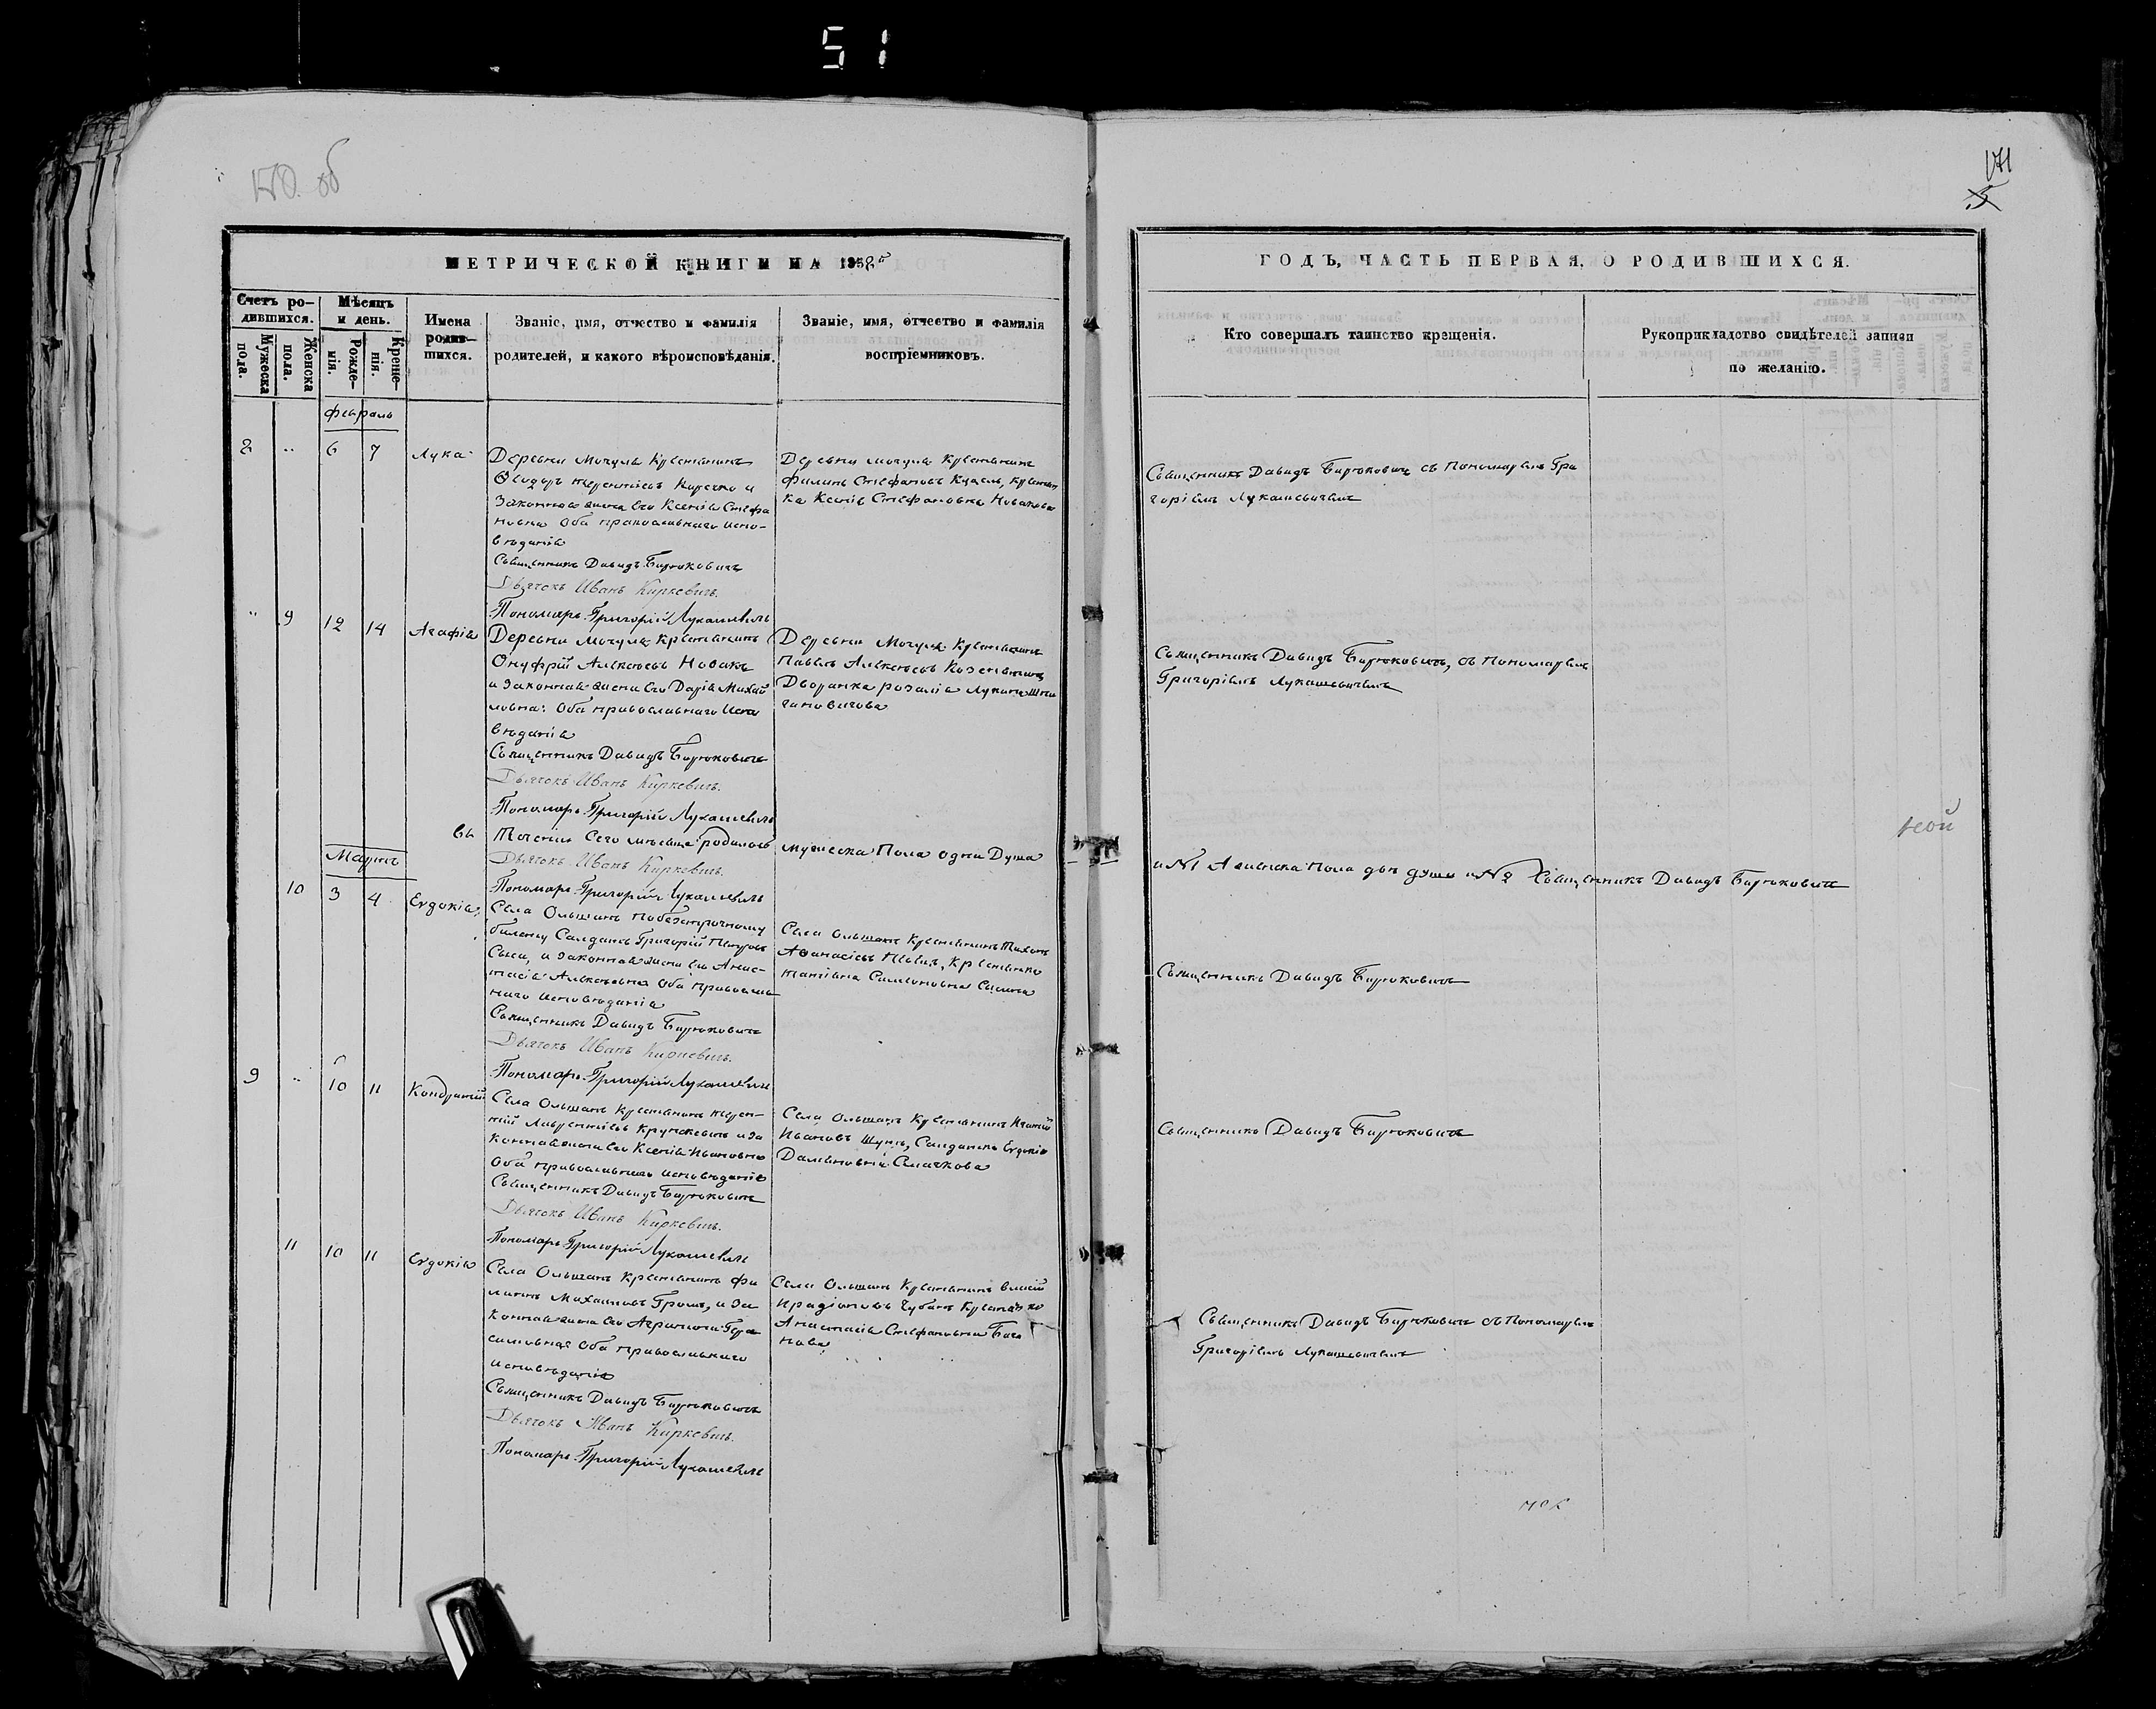 51
170. об
171
5
МЕТРИЧЕСКОЙ КНИГИ НА 1858й
ГОДЪ, ЧАСТЬ ПЕРВАЯ, О РОДИВШИХСЯ.
Счетъ ро-
дившихся.
Мужеска
пола.
Женска
пола.
Мѣсяцъ
и день.
Рожде-
нія.
Креще-
нія.
Имена
родив-
шихся.
Званіе, имя, отчество и фамилія
родителей, и какого вѣроисповѣданія.
Званіе, имя, отчество и фамилія
воспріемниковъ.
Кто совершалъ таинство крещенія.
Рукоприкладство свидѣтелей записи
по желанію.
Февраль
8 " 6 7 Лука
Деревни Мочуля Крестьянинъ
Ѳеодоръ Терентіевъ и
Законная жена его Ксенія Стефа
новна Оба православнаго испо-
вѣданія
Священникъ Давидъ Бирюковичъ
Дьячокъ Иванъ Киркевичъ.
Пономарь Григорій Лукашевичъ
Деревни Мочуля Крестьянинъ
Филипъ Стефановъ крестьян
ка Ксенія Стефановна Новакова
Священникъ Давидъ Бирюковичъ съ Пономаремъ Гри
горіемъ Лукашевичемъ
" 9 12 14 Агафія
Деревни Мочуля Крестьянинъ
Онуфрій Алексѣевъ Новакъ
и Законная жена его Дарія Михай
ловна: Оба православнаго Испо
вѣданія
Священникъ Давидъ Бирюковичъ
Дьячокъ Иванъ Киркевичъ.
Пономарь Григорій Лукашевичъ
Деревни Мочуля Крестьянинъ
Павелъ Алексѣевъ
Дворянка Розалія Лукина
Священникъ Давидъ Бирюковичъ, съ Пономаремъ
Григоріемъ Лукашевичемъ
Въ Теченіи Сего мѣсяца родилось
мужеска Пола одна Душа
№1 Женска Пола двѣ души №2 Священникъ Давидъ Бирюковичъ
Дьячокъ Иванъ Киркевичъ.
Пономарь Григорій Лукашевичъ
Мартъ
10 3 4 Евдокія
Села Ольшанъ по безсрочному
билету Салдатъ Григорій Петровъ
и законная жена его Анас-
тасія Алексѣевна Оба православ
наго исповѣданія
Священникъ Давидъ Бирюковичъ
Дьячокъ Иванъ Киркевичъ.
Пономарь Григорій Лукашевичъ
Села Ольшанъ Крестьянинъ Тихонъ
Афанасіевъ Крестьянка
Священникъ Давидъ Бирюковичъ
9 " 10 11 Кондратій
Села Ольшанъ Крестьянинъ Терен-
тій Лаврентіевъ и за
конная жена его Ксенія Ивановна
Оба православнаго исповѣданія
Священникъ Давидъ Бирюковичъ
Дьячокъ Иванъ Киркевичъ.
Пономарь Григорій Лукашевичъ
Села Ольшанъ Крестьянинъ Игнатій
Ивановъ Салдатка Евдокія
Священникъ Давидъ Бирюковичъ
11 10 11 Евдокія
Села Ольшанъ Крестьянинъ Фи
липъ Михаиловъ Громъ, и за
конная жена его Агрипина Гера
симовна Оба православнаго
исповѣданія
Священникъ Давидъ Бирюковичъ
Дьячокъ Иванъ Киркевичъ.
Пономарь Григорій Лукашевичъ
Села Ольшанъ Крестьянинъ
Иродіоновъ Крестьянка
Анастасія Стефановна
Священникъ Давидъ Бирюковичъ съ Пономаремъ
Григоріемъ Лукашевичемъ